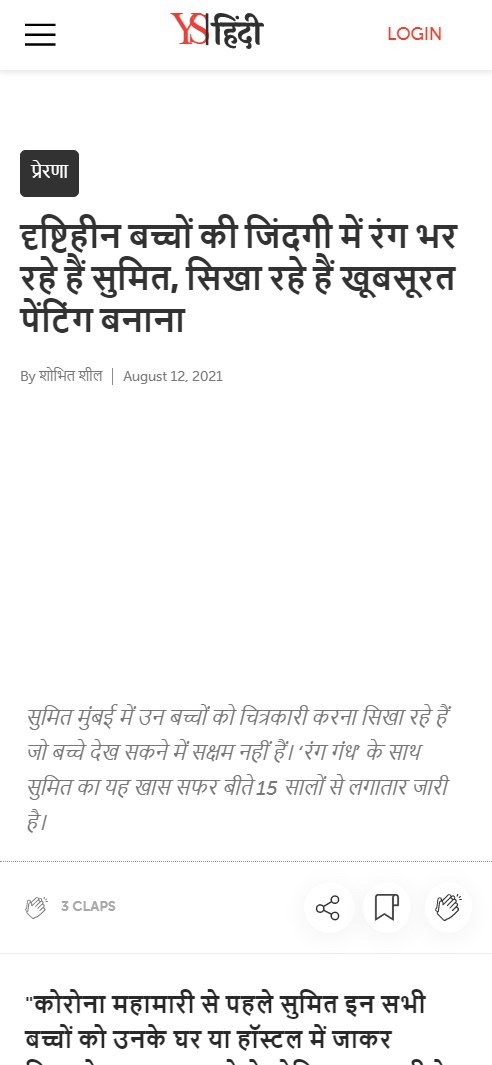 YS हिंदी
LOGIN
प्रेरणा
दृष्टिहीन बच्चों की जिंदगी में रंग भर
रहे हैं सुमित, सिखा रहे हैं खूबसूरत
पेंटिंग बनाना
By शोभित शील | August 12, 2021
सुमित मुंबई में उन बच्चों को चित्रकारी करना सिखा रहे हैं
जो बच्चे देख सकने में सक्षम नहीं हैं। ‘रंग गंध’ के साथ
सुमित का यह खास सफर बीते 15 सालों से लगातार जारी
है।
3 CLAPS
"कोरोना महामारी से पहले सुमित इन सभी
बच्चों को उनके घर या हॉस्टल में जाकर